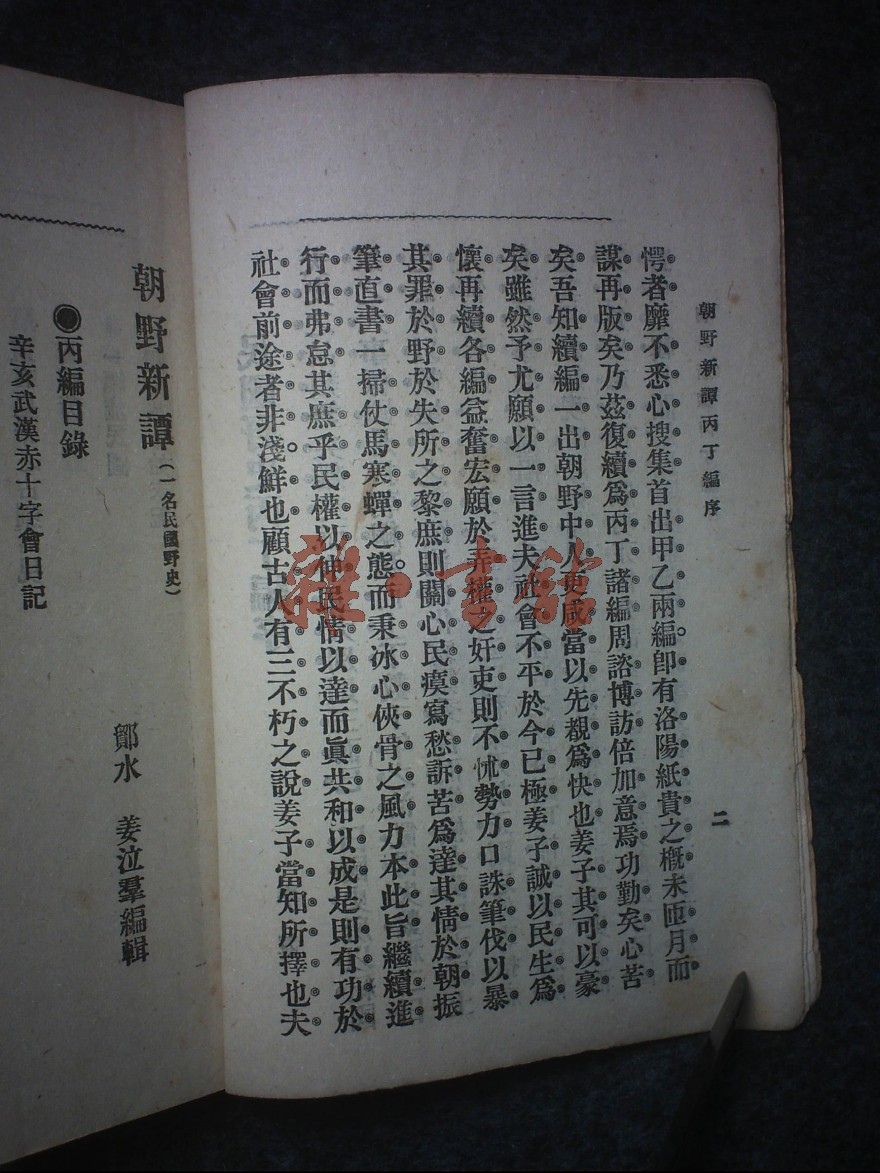 朝野新譚丙丁編序
二
愕者靡不悉心搜集首出甲乙兩編。卽有洛陽紙貴之槪未匝月而
謀再版矣乃茲復續爲丙丁諸編周諮博訪倍加意焉功勤矣心苦
矣吾知續編一出朝野中人更咸當以先覩爲快也姜子其可以豪
矣雖然予尤願以一言進夫社會不平於今已極姜子誠以民生爲
懷再續各編益奮宏願於弄權之奸吏則不怵勢力口誅筆伐以暴
其罪於野於失所之黎庶則關心民瘼寫愁訴苦爲達其情於朝振
筆直書一掃仗馬寒蟬之態。而秉冰心俠骨之風力本此旨繼續進
行而弗怠其庶乎民權以伸民情以達而眞共和以成是則有功於
社會前途者非淺鮮也顧古人有三不朽之說姜子當知所擇也夫
朝野新譚(一名民國野史)
鄮水 姜泣羣編輯
◉丙編目錄
辛亥武漢赤十字會日記
雜·書館